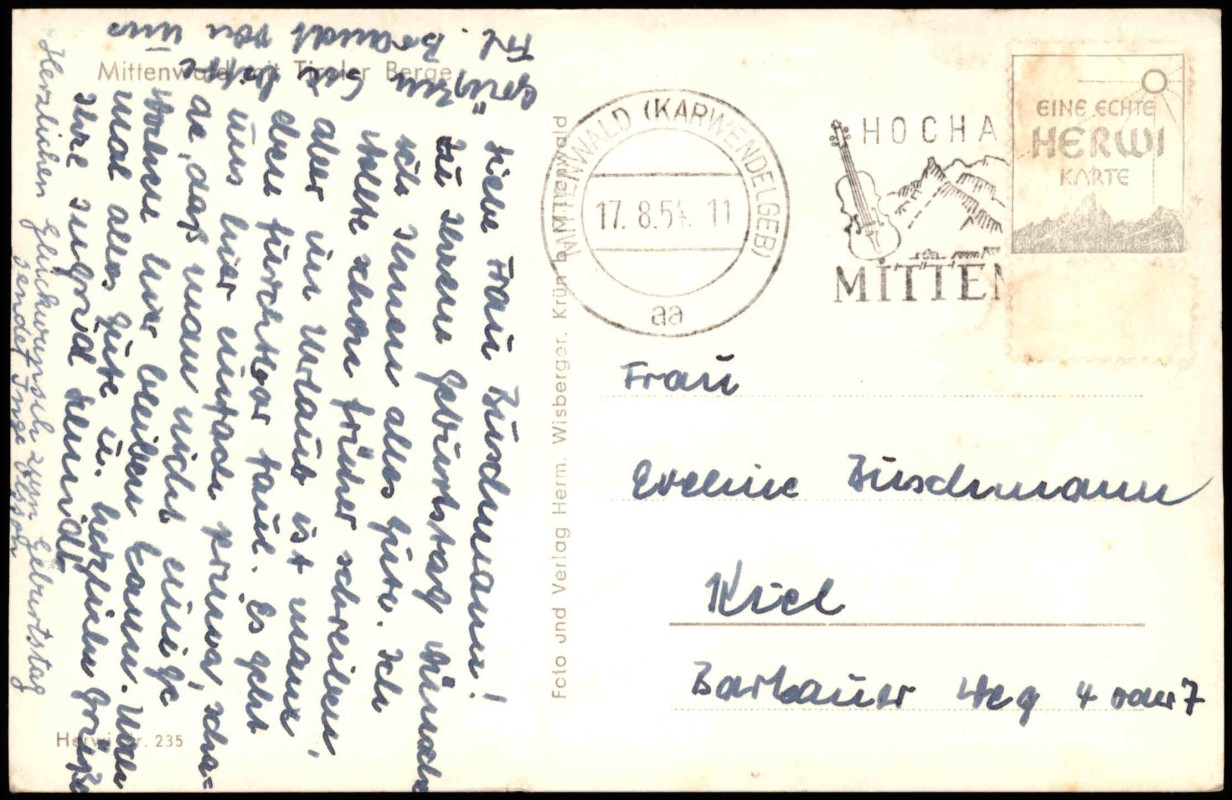 Mittenwald mit Tiroler Berge
Liebe Frau Buschmann!
Zu Ihrem Geburtstag wünsche
ich Ihnen alles Gute. Ich
wollte schon früher schreiben,
aber im Urlaub ist man
eben furchtbar faul. Es geht
uns hier einfach prima, scha=
de, daß man nicht einige
Wochen hier bleiben kann. Noch
mal alles Gute u. herzliche Grüße
Ihre Ingrid
Grüßen Sie bitte
Frl. Brandt von uns
Herzlichen Glückwunsch zum Geburtstag
sendet Inge
Herwi Nr. 235
Foto und Verlag Herm. Wisberger, Krün b. Mittenwald
MITTENWALD (KARWENDELGEB)
17. 8.54. 11
aa
HOCHA
MITTEN
EINE ECHTE
HERWI
KARTE
Frau
Eveline Buschmann
Kiel
Barkauer Weg 4 oder 7